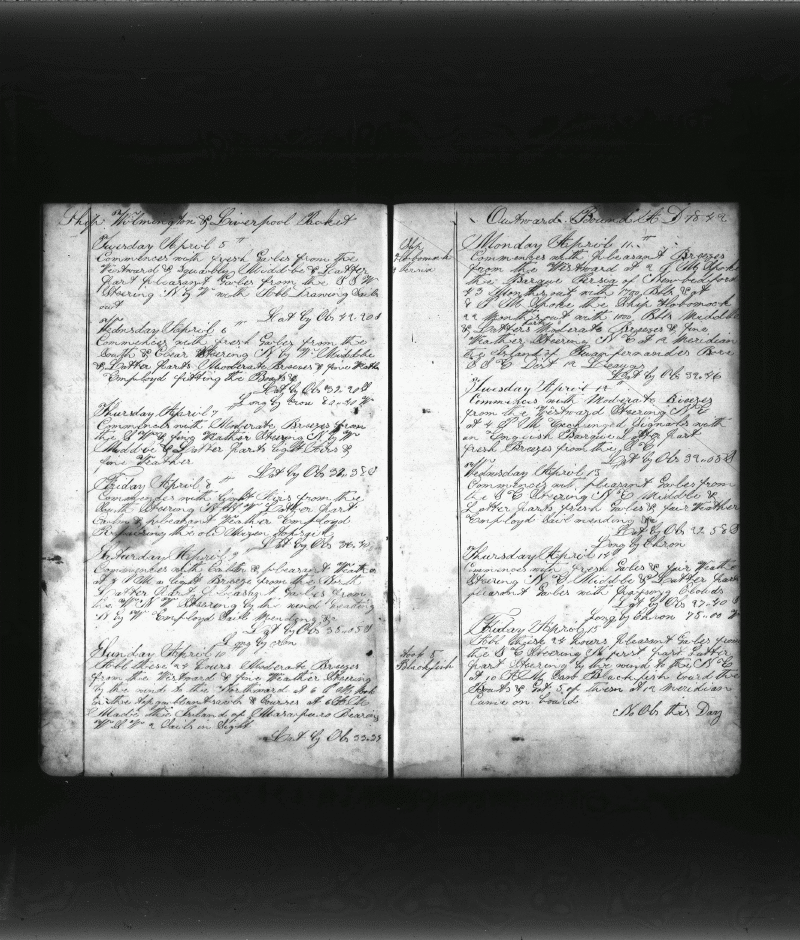 Ship Wilmington & Liverpool Packet
Tuesday April 5"
Commences with fresh Gales from the
Westward & Squally Middle & Latter
part pleasant Gales from the S S W
Steering N by W with all drawing Sails
out
Lat by Obs 42.20 S
Wednsday April 6"
Commences with fresh Gales from the
South & Clear Steering N by W Middle
& Latter parts Moderate Breezes & fine Weather
Employd fitting the Boats &
Lat by Obs
Long by Cron
Thursday April 7
Commences with Moderate Breezes from
the S W & fine Wather Steering N by W
Middle & Latter parts Light Airs &
fine Weather
Lat by Obs
Friday April 8"
Commences with Light Airs from the
South Steering Latter part
Calms & pleasant Weather Employd
Repairing the old Mizen Topsail
Lat by Obs
Saturday April 9"
Commences with Calm & pleasant Weather
at 4 P M a light Breeze from the North
Latter Part a pleasant Gales from
the W N W Steering by the wind heading
N by W Employd Sail Mending &c
Lat by Obs 35.05 S
Long by Cron
Sunday April 10"
All these 24 hours Moderate Breezes
from the Westward & fine Weather Steering
by the wind to the Northward at 6 P M took
in the topgallantsails & Courses at 6 A M
Made the Island of Masafuero Bearing
W S W 2 Sails in Sight
Lat by Obs 33.39
Outward Bound A. D 1842
Ship
Hobomock
Monday April 11"
Commences with pleasant Breezes
from the Westward at 2 P M Spoke
the Barque Persia of New bedford
43 Months out with 700 Blls &
at P M Spoke the Ship Hobomock
22 Months out with 1000 Blls Middle
& Latter parts Moderate Breezes & fine
Wather Steering N E at 12 Meridian
the Island of Juanfernandes Bore
S S E Dist 12 Leagus
Lat by Obs 32.46
Tuesday April 12"
Commences with Moderate Breezes
from the Westward Steering N E
at 4 P M Exchanged Signals with
an English Barque Latter part
fresh Breezes from the S E
Lat by Obs
Wednsday April 13
Commences with pleasant Gales from
the S E Steering N E Middle &
Latter parts fresh Gales & fair Weather
Employd Sail mending &c
Lat by Obs
Long by Chron
Thursday April 14"
Commences with fresh Gales & fair Weather
Steering N E Middle & Latter parts
pleasant Gales with passing Clouds
Lat by Obs 27.40 S
Long by Chron 75.00 W
Took 5
Blackfish
Friday April 15"
All these 24 hours pleasant Gales from
the S E Steering N first part Latter
part Steering by the wind to the N E
at 10 A M Saw Blackfish Lowrd the
Boats & took 5 of them at 12 Meridian
Came on board
No Obs this Day